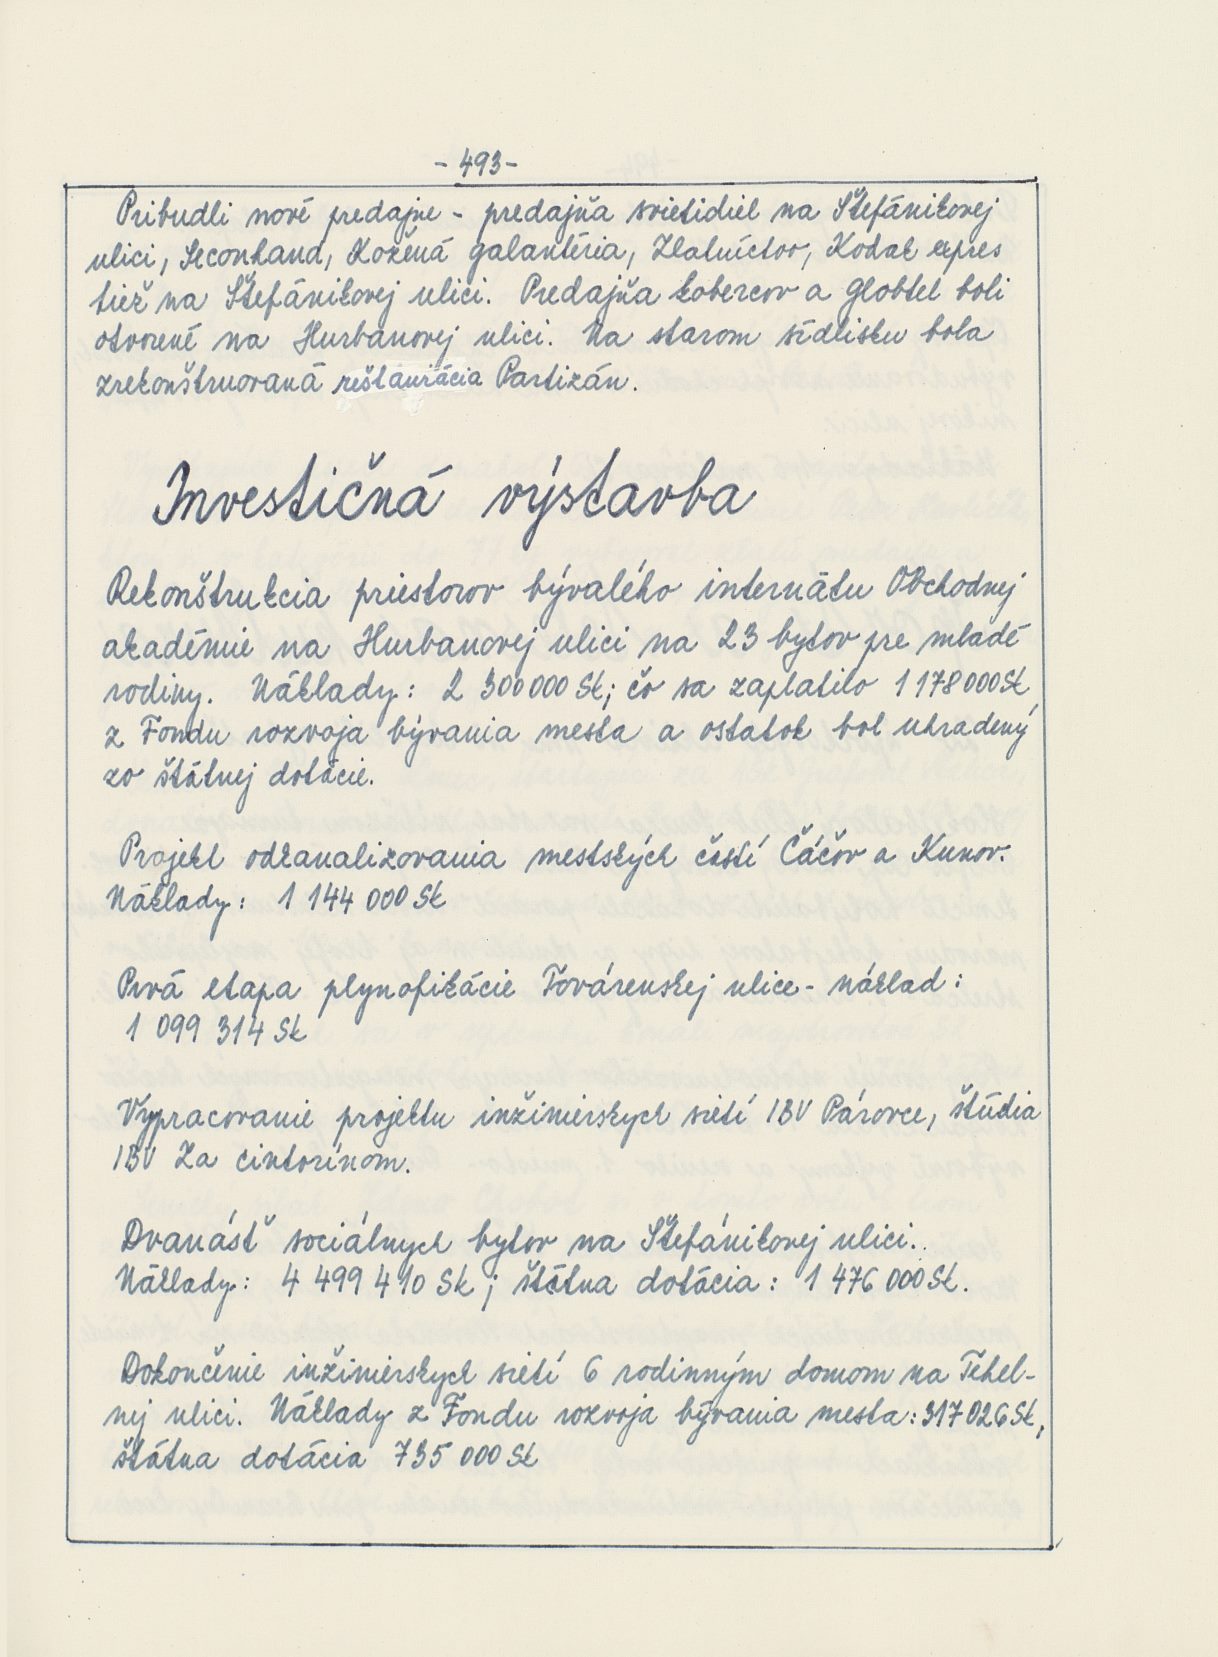 - 493 -
Pribudli nové predajne - predajňa svietidiel na Štefánikovej
ulici, Seconhand, Kožená galantéria, Zlatníctvo, Kodak expres
tiež na Štefánikovej ulici. Predajňa kobercov a Globtel boli
otvorené na Hurbanovej ulici. Na starom sídlisku bola
zrekonštruovaná reštaurácia Partizán.
Investičná výstavba
Rekonštrukcia priestorov bývalého internátu Obchodnej
akadémie na Hurbanovej ulici na 23 bytov pre mladé
rodiny. Náklady: 2 300 000 Sk; čo sa zaplatilo 1 178 000 Sk
z Fondu rozvoja bývania mesta a ostatok bol uhradený
zo štátnej dotácie.
Projekt odkanalizovania mestských častí Čáčov a Kunov.
Náklady: 1 144 000 Sk
Prvá etapa plynofikácie Továrenskej ulice - náklad:
1 099 314 Sk
Vypracovanie projektu inžinierskych sietí IBV Párovce, štúdia
IBV Za cintorínom.
Dvanásť sociálnych bytov na Štefánikovej ulici.
Náklady: 4 499 410 Sk; štátna dotácia: 1 476 000 Sk.
Dokončenie inžinierskych sietí 6 rodinným domom na Tehel-
nej ulici. Náklady z Fondu rozvoja bývania mesta: 317 026 Sk,
štátna dotácia 735 000 Sk